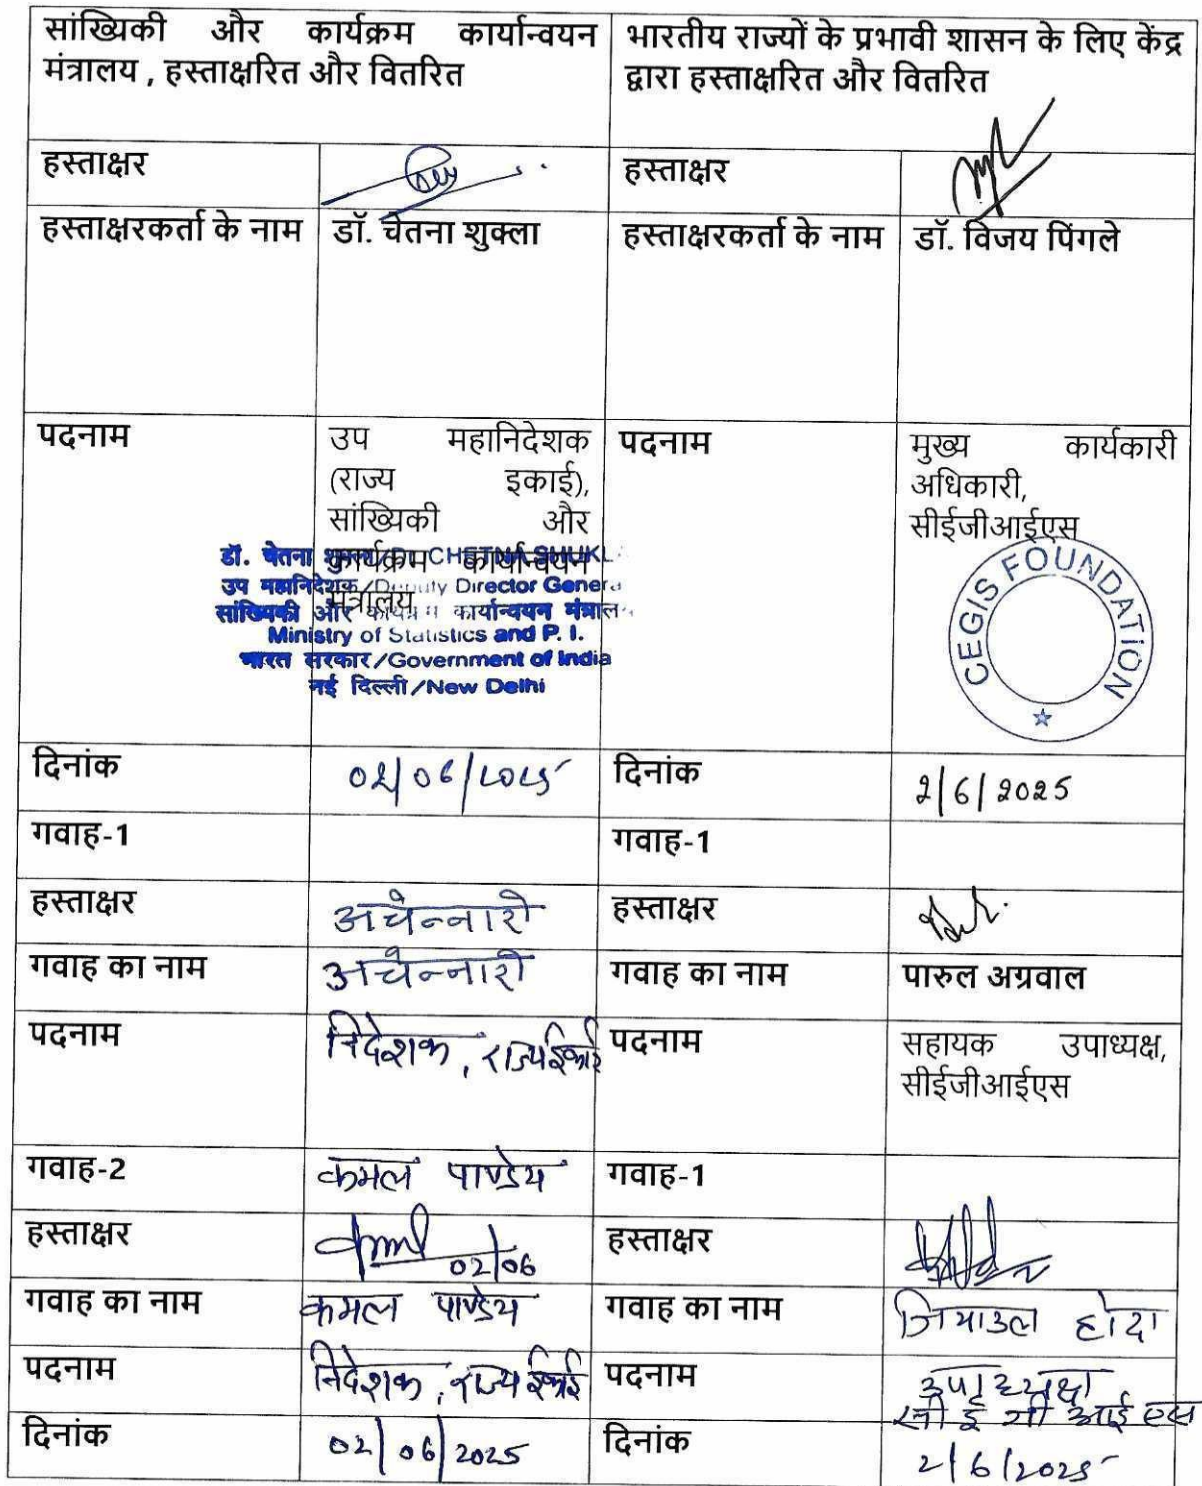 सांख्यिकी और कार्यक्रम कार्यान्वयन
मंत्रालय , हस्ताक्षरित और वितरित
भारतीय राज्यों के प्रभावी शासन के लिए केंद्र
द्वारा हस्ताक्षरित और वितरित
हस्ताक्षर
हस्ताक्षर
हस्ताक्षरकर्ता के नाम
डॉ. चेतना शुक्ला
हस्ताक्षरकर्ता के नाम
डॉ. विजय पिंगले
पदनाम
उप महानिदेशक
(राज्य इकाई),
सांख्यिकी और
कार्यक्रम कार्यान्वयन
मंत्रालय
डॉ. चेतना शुक्ला/Dr. CHETNA SHUKL
उप महानिदेशक/Deputy Director Genera
सांख्यिकी और कार्यक्रम कार्यान्वयन मंत्राल
Ministry of Statistics and P. I.
भारत सरकार/Government of India
नई दिल्ली/New Delhi
पदनाम
मुख्य कार्यकारी
अधिकारी,
सीईजीआईएस
CEGIS FOUNDATION
दिनांक
02/06/2025
दिनांक
2/6/2025
गवाह-1
गवाह-1
हस्ताक्षर
अचेन्नारी
हस्ताक्षर
गवाह का नाम
अचेन्नारी
गवाह का नाम
पारुल अग्रवाल
पदनाम
निदेशक, राज्य ईकाई
पदनाम
सहायक उपाध्यक्ष,
सीईजीआईएस
गवाह-2
कमल पाण्डेय
गवाह-1
हस्ताक्षर
02/06
हस्ताक्षर
गवाह का नाम
कमल पाण्डेय
गवाह का नाम
जियाउल होदा
पदनाम
निदेशक, राज्य ईकाई
पदनाम
उपाध्यक्ष
सी ई जी आई एस
दिनांक
02/06/2025
दिनांक
2/6/2025